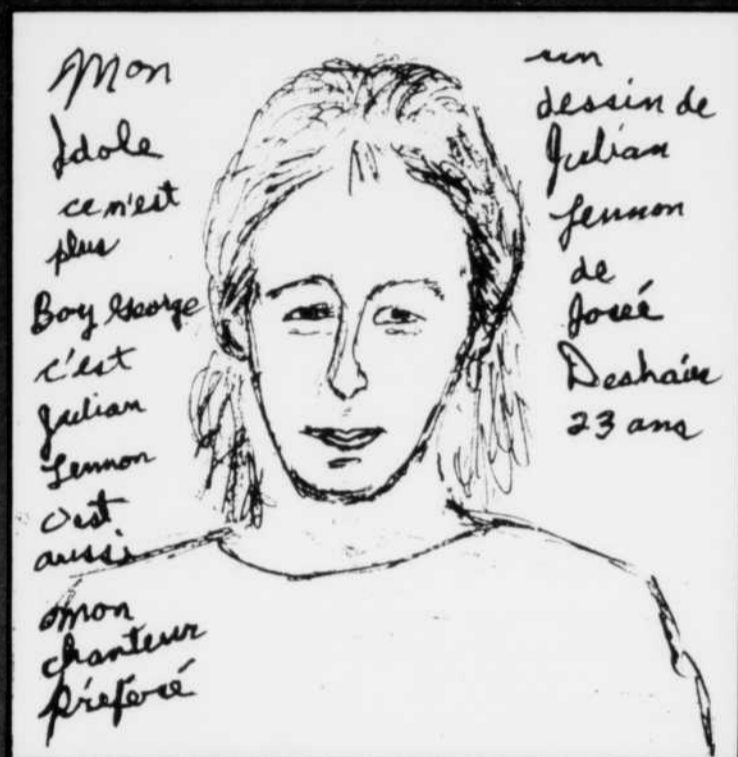 Mon
Idole
ce n'est
plus
Boy George
c'est
Julian
Lennon
c'est
aussi
mon
chanteur
préféré
un
dessin de
Julian
Lennon
de
Josée
Deshaies
23 ans